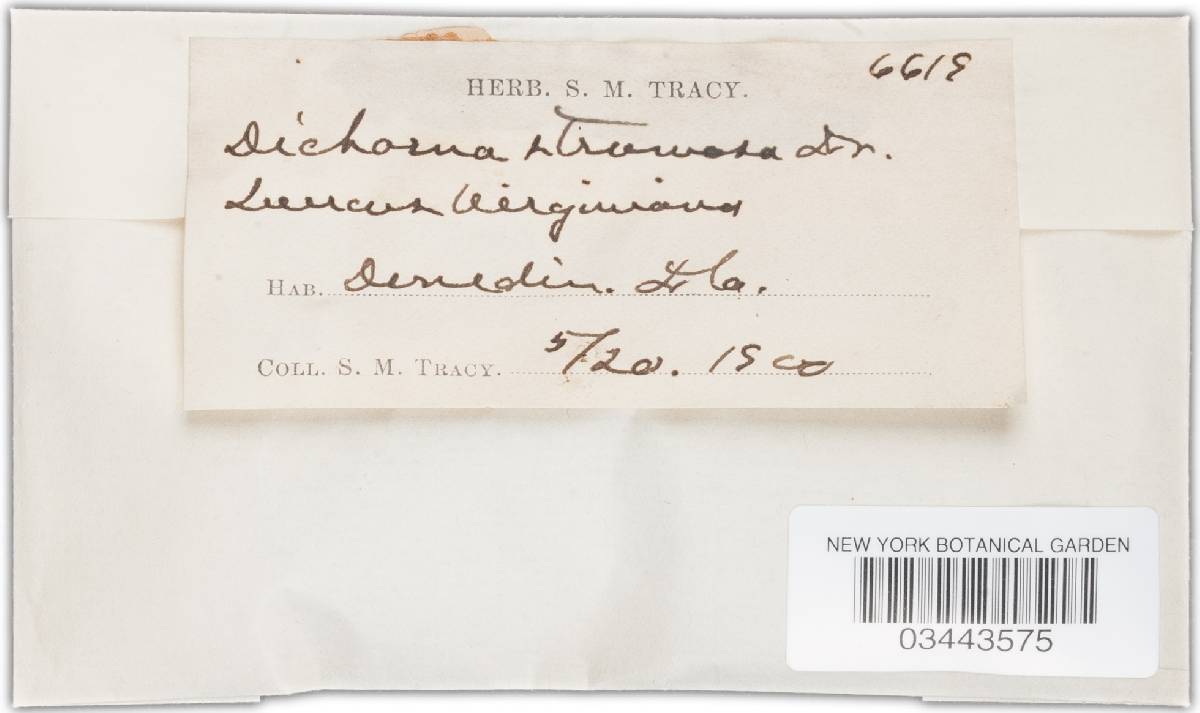 6619
HERB. S. M. TRACY.
Dichaena strumosa Fr.
Quercus Virginiana
HAB. Denedin. Fla.
COLL. S. M. TRACY. 5/20. 1900
NEW YORK BOTANICAL GARDEN
03443575